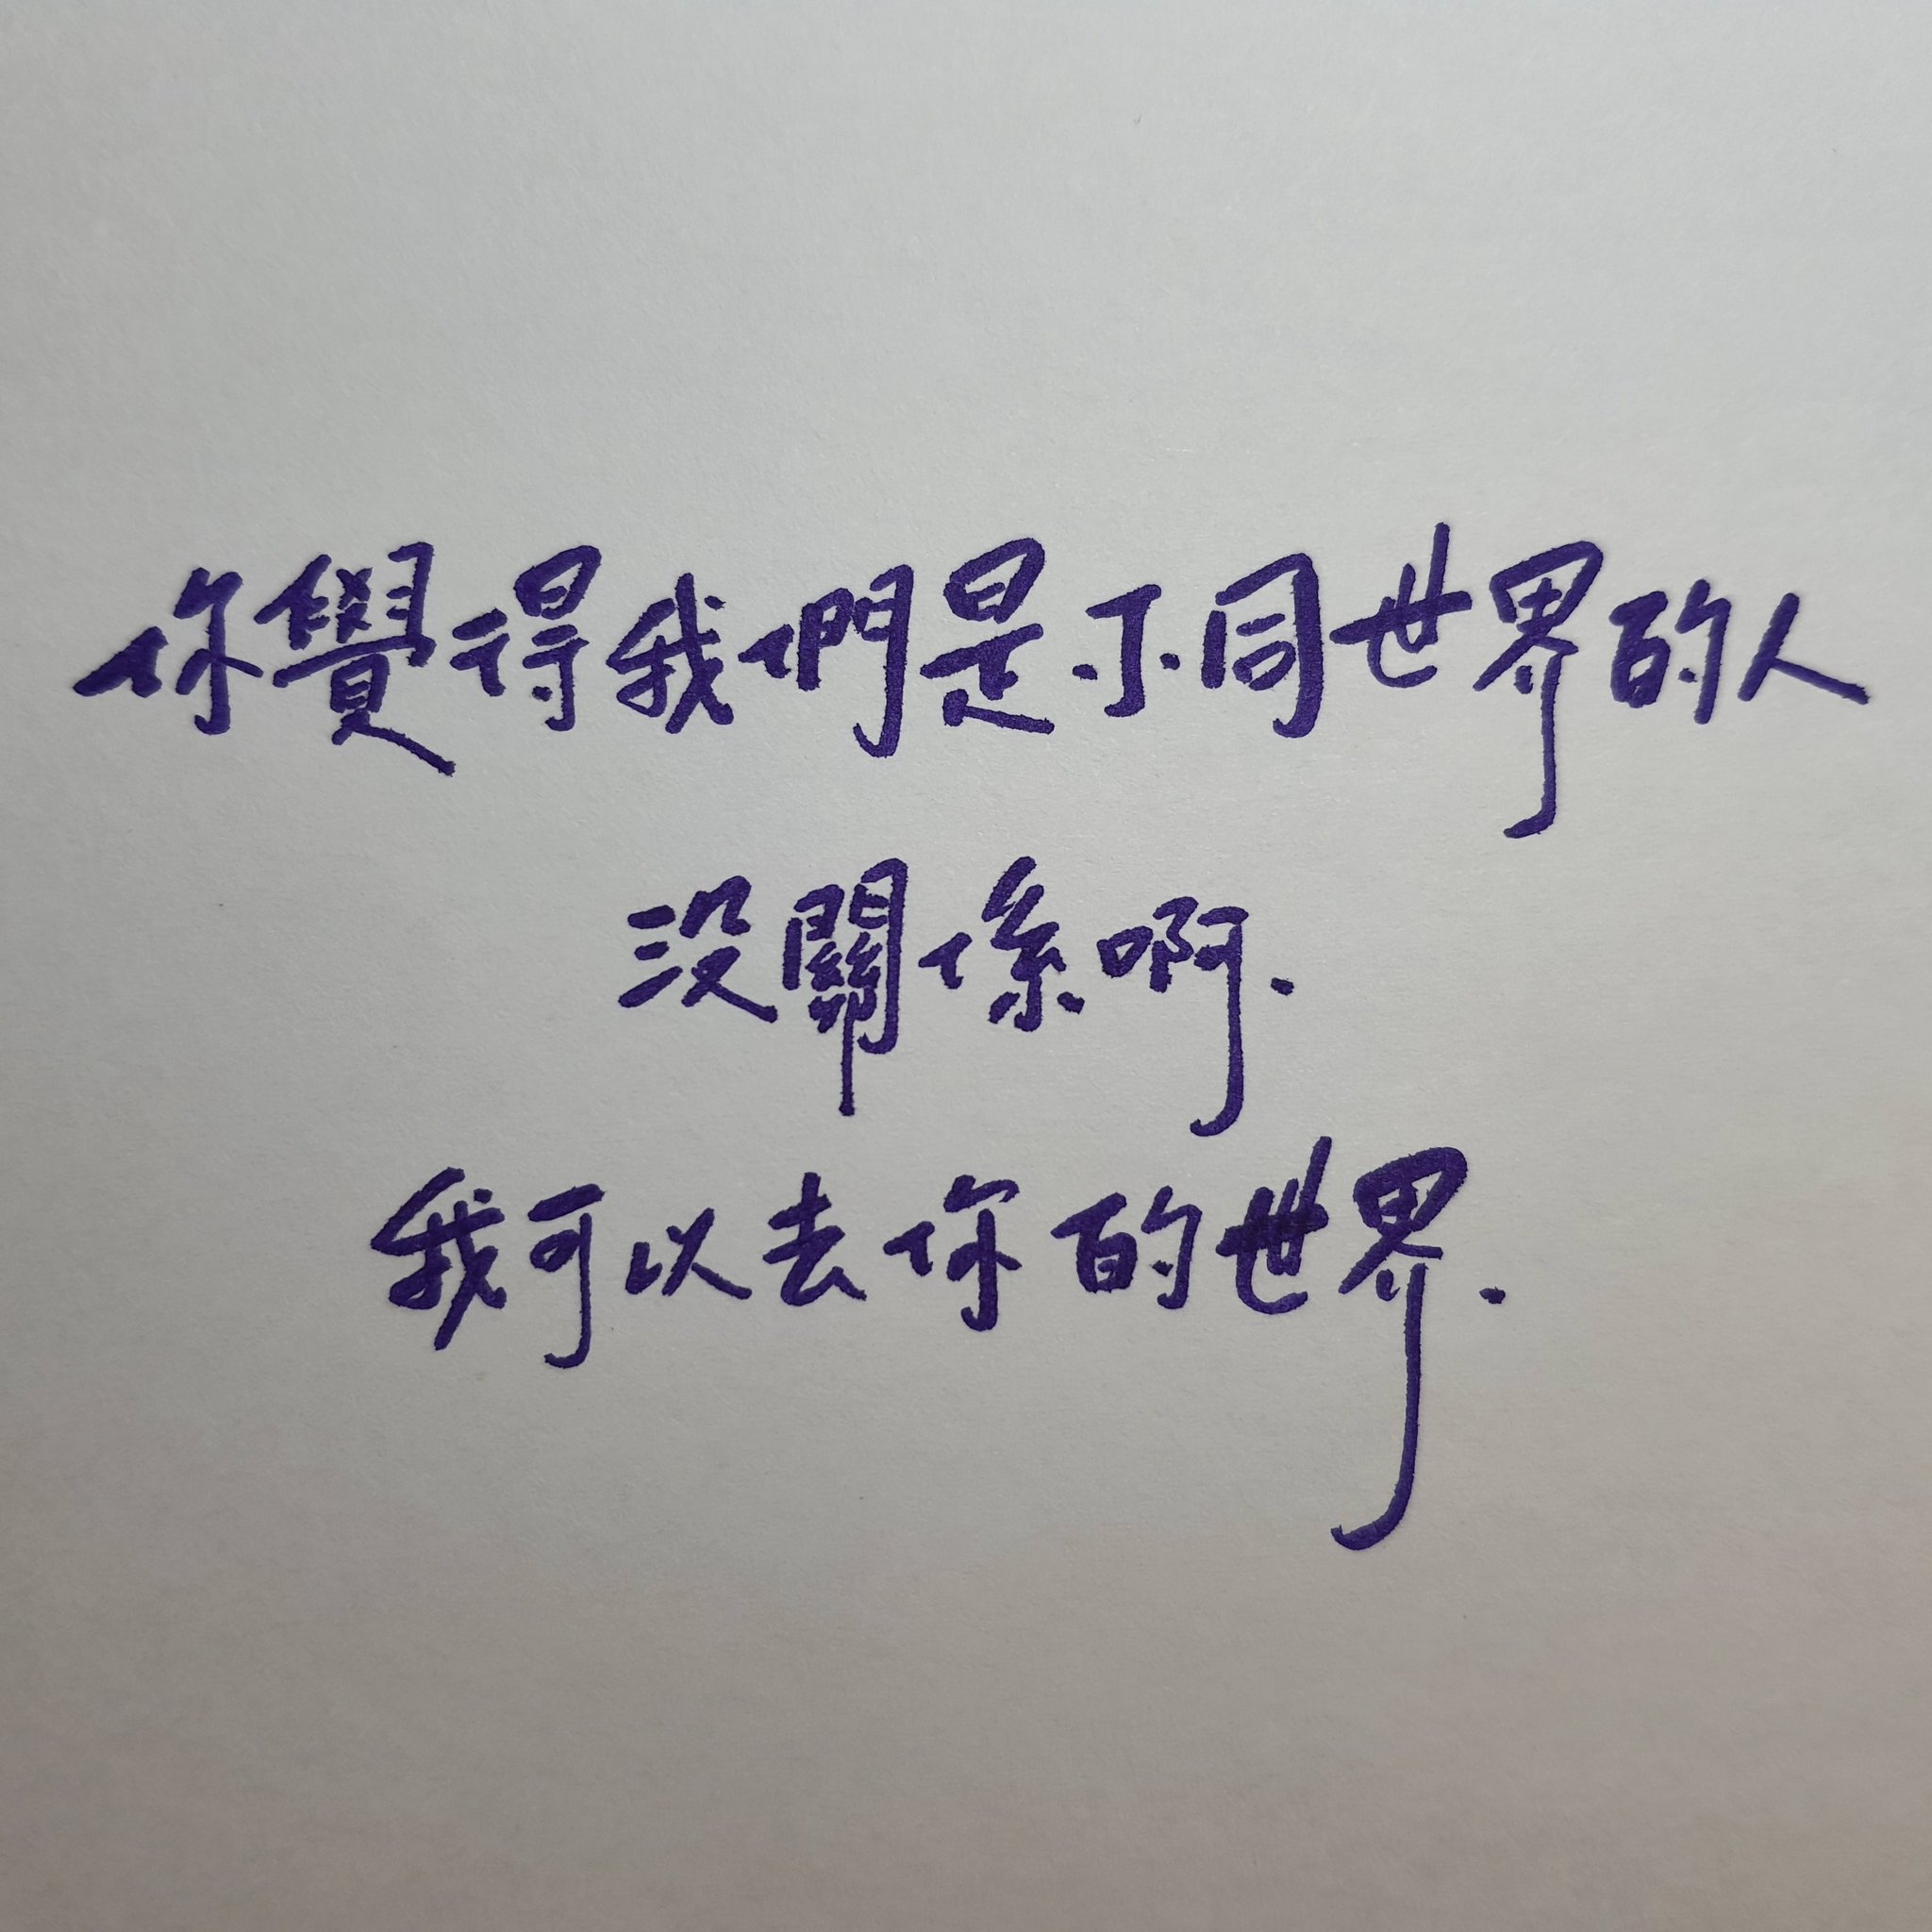 你覺得我們是不同世界的人
沒關係啊.
我可以去你的世界.